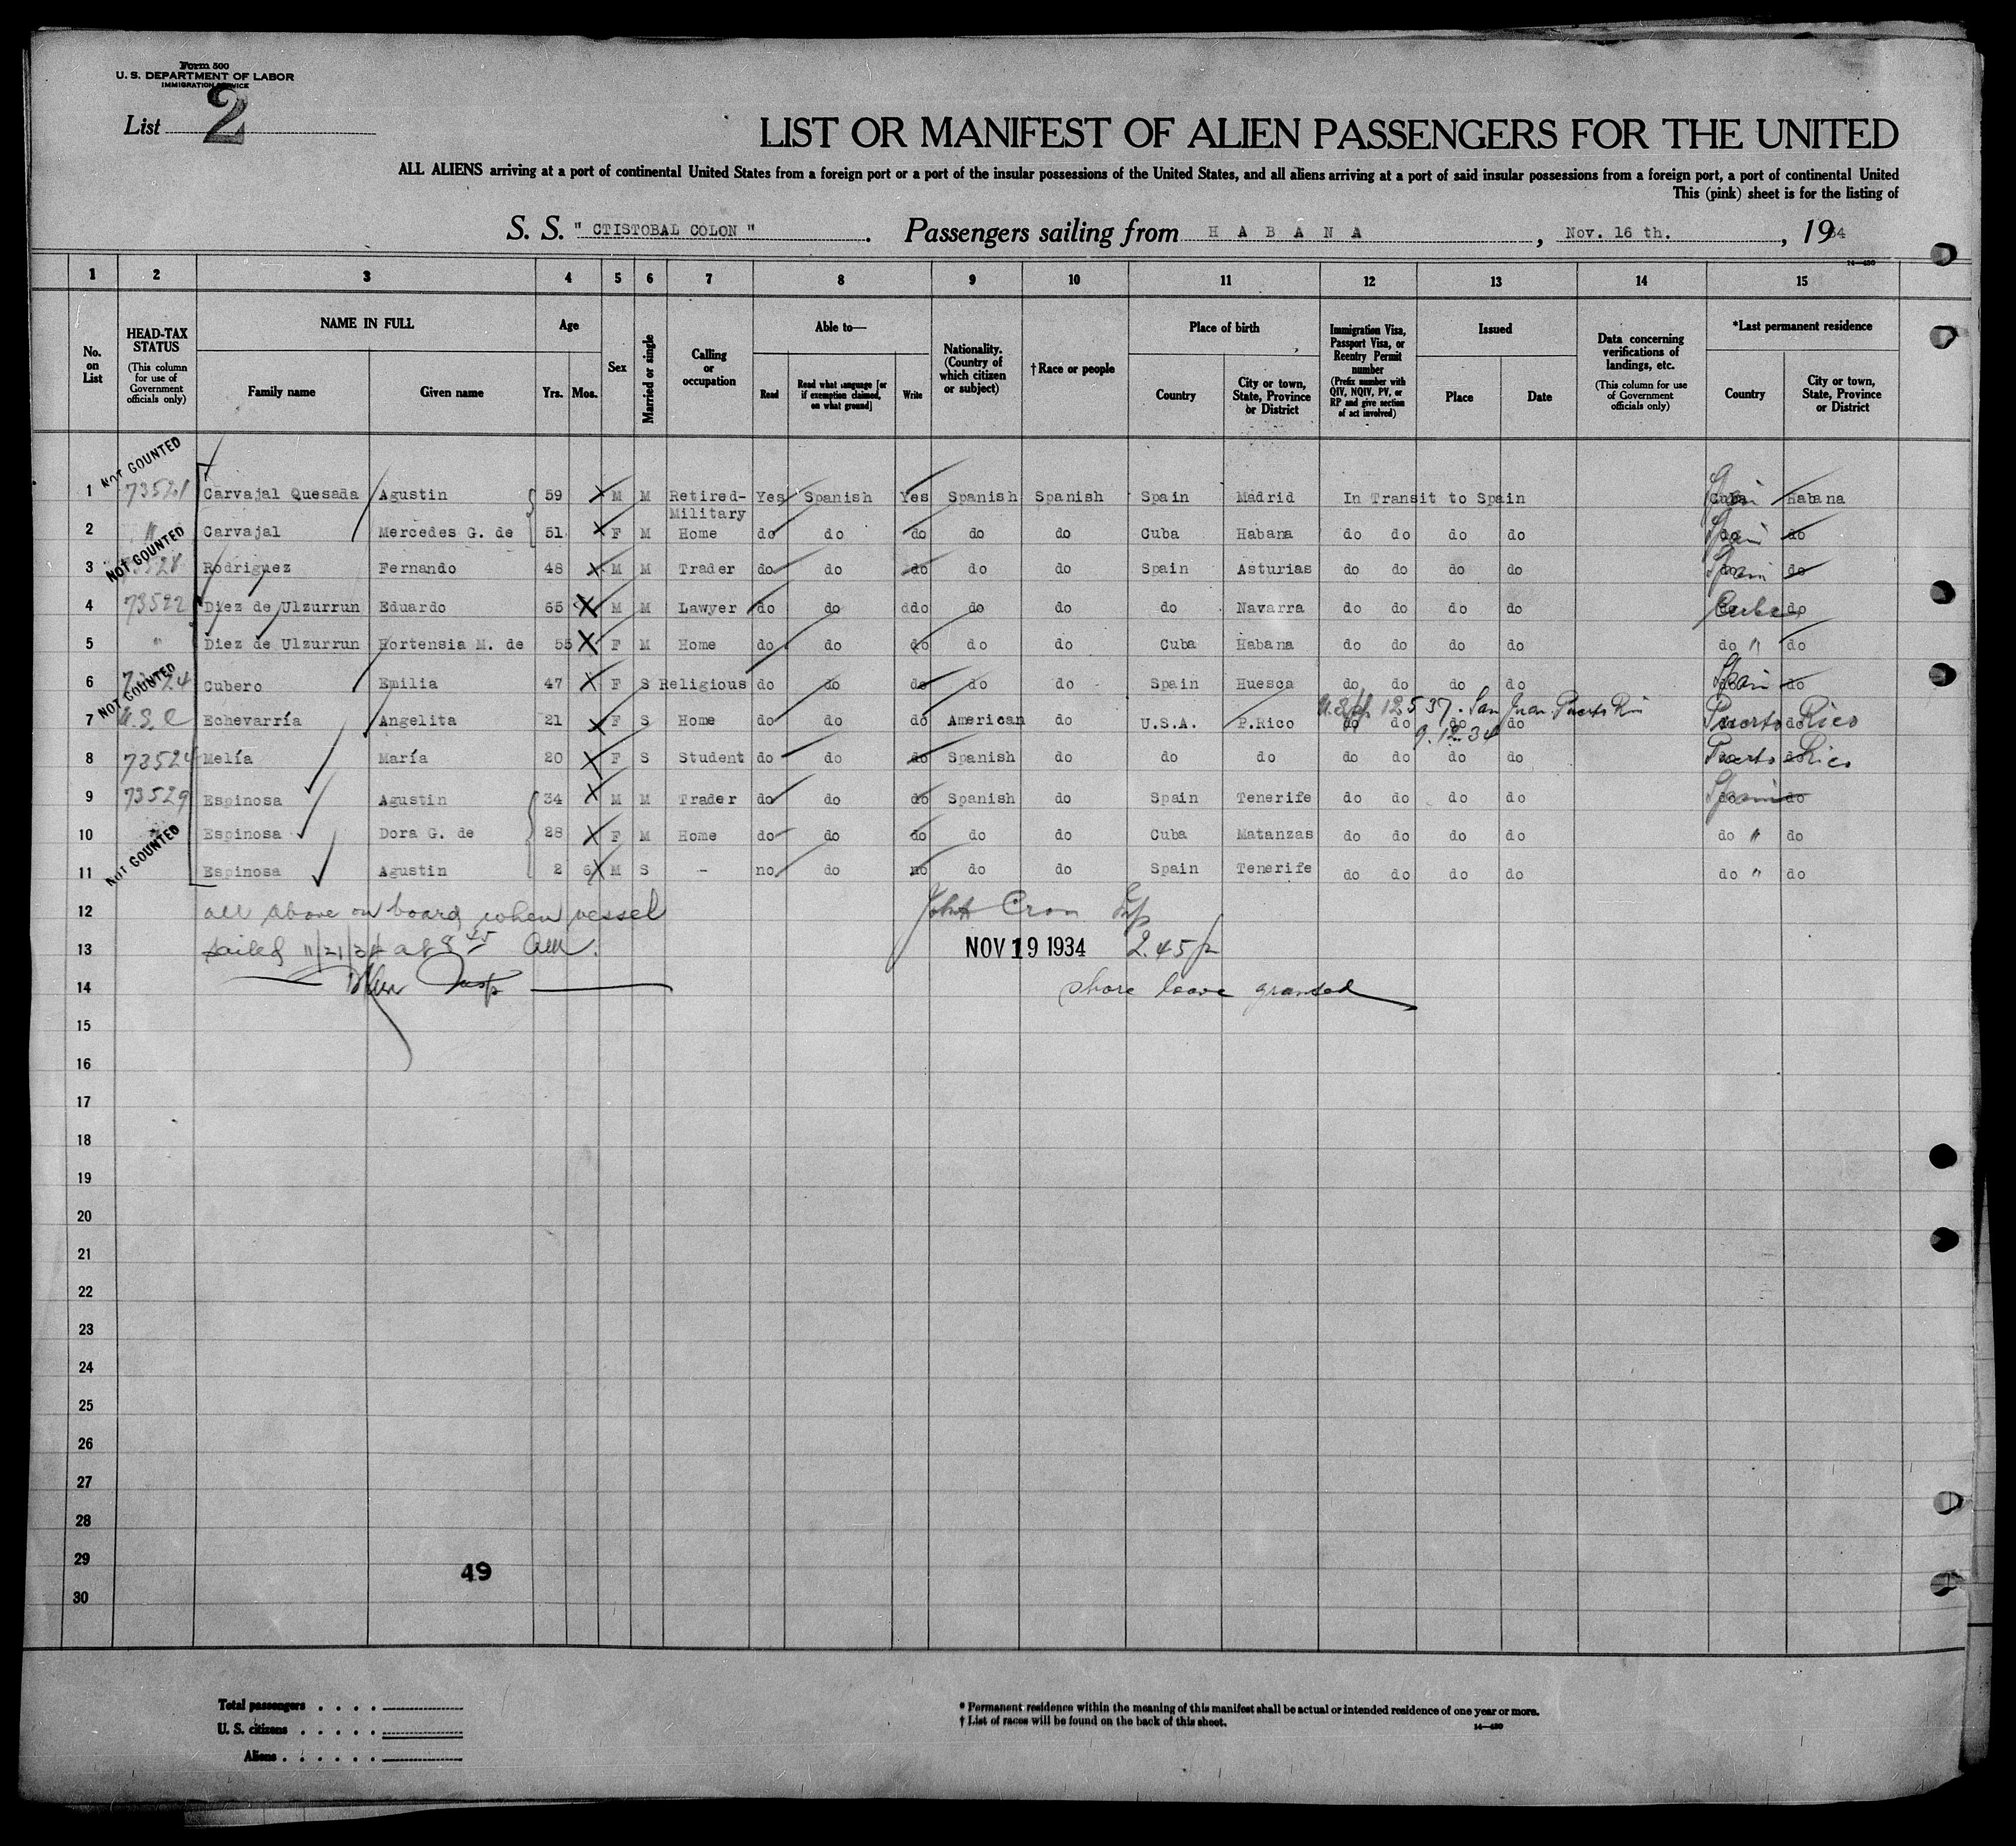 Form 500
U. S. DEPARTMENT OF LABOR
IMMIGRATION SERVICE
List 2
LIST OR MANIFEST OF ALIEN PASSENGERS FOR THE UNITED
ALL ALIENS arriving at a port of continental United States from a foreign port or a port of the insular possessions of the United States, and all aliens arriving at a port of said insular possessions from a foreign port, a port of continental United
This (pink) sheet is for the listing of
S. S. " CTISTOBAL COLON " . Passengers sailing from H A B A N A , Nov. 16 th. , 1934
14—430
1 2 3 4 5 6 7 8 9 10 11 12 13 14 15
No. on List
HEAD-TAX STATUS (This column for use of Government officials only)
NAME IN FULL
Family name Given name
Age
Yrs. Mos.
Sex
Married or single
Calling or occupation
Able to—
Read Read what language [or if exemption claimed, on what ground] Write
Nationality. (Country of which citizen or subject)
†Race or people
Place of birth
Country City or town, State, Province or District
Immigration Visa, Passport Visa, or Reentry Permit number (Prefix number with QIV, NQIV, PV, or RP and give section of act involved)
Issued
Place Date
Data concerning verifications of landings, etc. (This column for use of Government officials only)
*Last permanent residence
Country City or town, State, Province or District
NOT COUNTED
1 73521 Carvajal Quesada Agustin 59 M M Retired-Military Yes Spanish Yes Spanish Spanish Spain Madrid In Transit to Spain Cuba Spain Habana
2 " Carvajal Mercedes G. de 51 F M Home do do do do do Cuba Habana do do do do do Spain do
NOT COUNTED
3 73528 Rodriguez Fernando 48 M M Trader do do do do do Spain Asturias do do do do do Spain do
4 73522 Diez de Ulzurrun Eduardo 65 M M Lawyer do do ddo do do do Navarra do do do do do Cuba do
5 " Diez de Ulzurrun Hortensia M. de 55 F M Home do do do do do Cuba Habana do do do do do " do
NOT COUNTED
6 Cubero Emilia 47 F S Religious do do do do do Spain Huesca do do do do do Spain do
U.S. 12537. San Juan Puerto Rico
7 U.S.C Echevarría Angelita 21 F S Home do do do American do U.S.A. P.Rico do do do do do Puerto Rico do
9.12.34
8 73524 Melía María 20 F S Student do do do Spanish do do do do do do do do Puerto Rico do
9 73529 Espinosa Agustin 34 M M Trader do do do Spanish do Spain Tenerife do do do do do Spain do
10 " Espinosa Dora G. de 28 F M Home do do do do do Cuba Matanzas do do do do do " do
NOT COUNTED
11 Espinosa Agustin 2 6 M S - no do no do do Spain Tenerife do do do do do " do
12 all above on board when vessel John Cron Insp
13 sailed 11/21/34 at 8 45 am. NOV 19 1934 2.45 p
14 Insp shore leave granted
15
16
17
18
19
20
21
22
23
24
25
26
27
28
29
49
30
Total passengers . . . .
U. S. citizens . . . . .
Aliens . . . . . .
* Permanent residence within the meaning of this manifest shall be actual or intended residence of one year or more.
† List of races will be found on the back of this sheet.
14—430